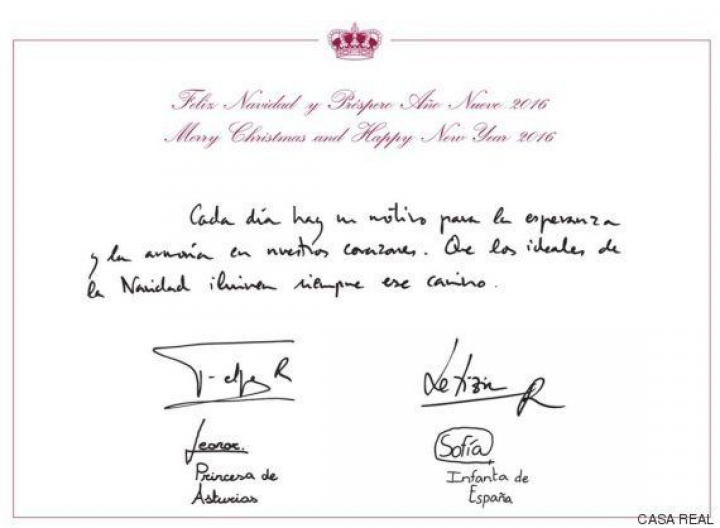 Feliz Navidad y Próspero Año Nuevo 2016
Merry Christmas and Happy New Year 2016
Cada día hay un motivo para la esperanza
y la armonía en nuestros corazones. Que los ideales de
la Navidad iluminen siempre ese camino.
Felipe R
Letizia R
Leonor.
Princesa de
Asturias
Sofía
Infanta de
España
CASA REAL